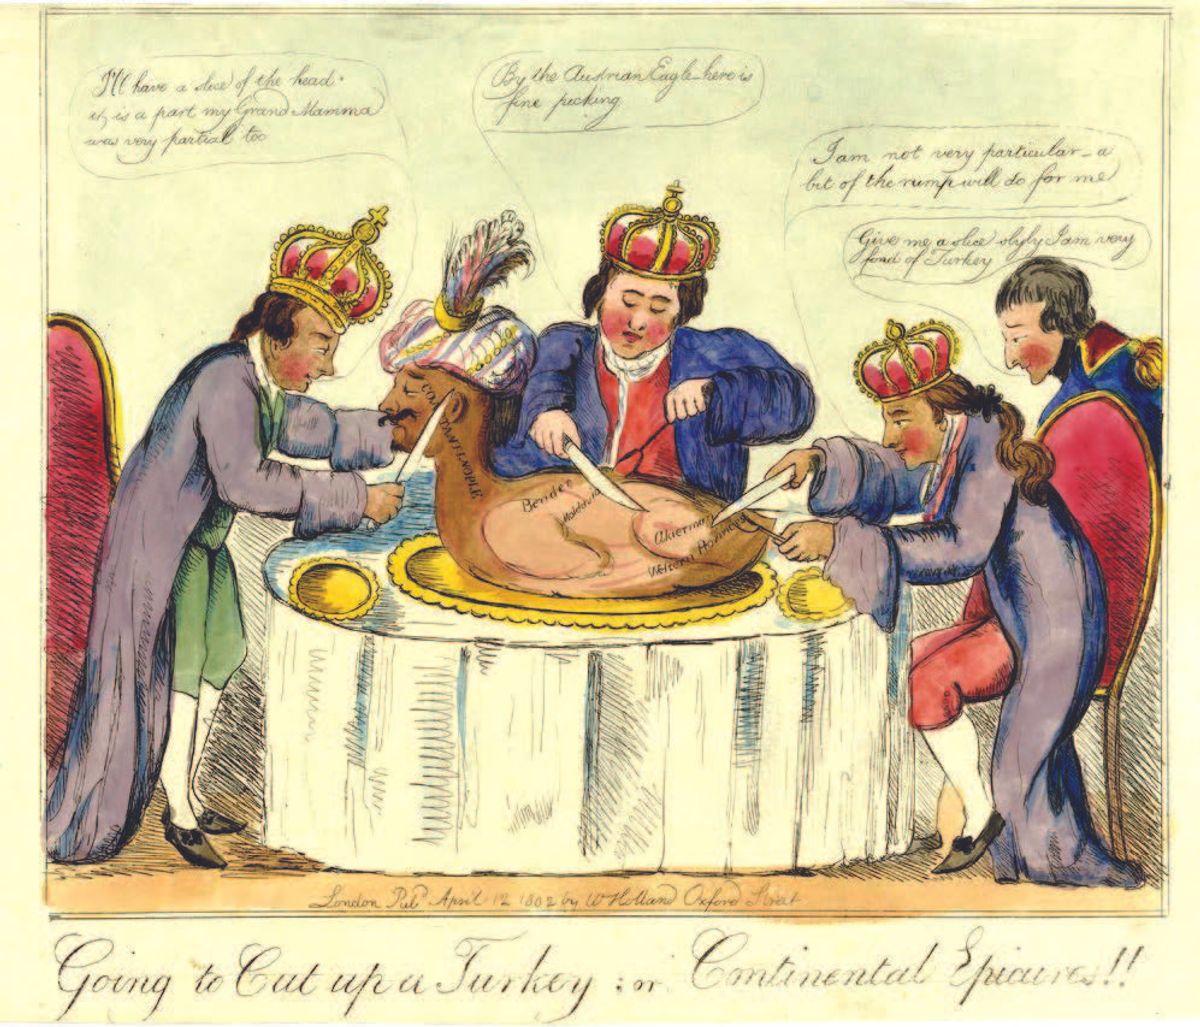 I'll have a slice of the head
it is a part my Grand Mamma
was very partial too
By the Austrian Eagle here is
fine picking
I am not very particular _ a
bit of the rump will do for me
Give me a slice slyly I am very
fond of Turkey
CONSTANTINOPLE
Bender
Moldavia
Akierman
London Pubd April 12 1802 by W Holland Oxford Street
Going to Cut up a Turkey ; or Continental Epicures!!